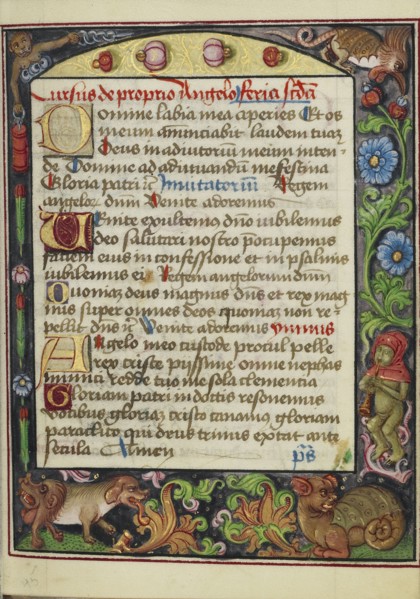 Cursus de proprio Angelo feria scda
Domine labia mea aperies Et os
meum annunciabit laudem tuaz
Deus in adiutoriuz meum inten-
de Domine ad adiuvandū me festina
Gloria patri ⁊c Inuitatoriū Regem
angeloꝝ dnm Venite adoremus
Venite exultemus dno iubilemus
deo salutari nostro p̄occupemus
faciem eius in confessione et in psalmis
iubilemus ei Regem angelorum dnm
Quoniaz deus magnus dns et rex mag
nus super omnes deos quoniaz non re-
pellit dns ⁊c Venite adoremus ymnus
Angelo meo custode procul pelle
rex criste pyssime omne nephas
inimici redde tuo me sola clementia
Gloriam patri indottis resonemus
vocibus gloriaz cristo canamus gloriam
paraclito qui deus trinus extat ante
secula Amen
ps